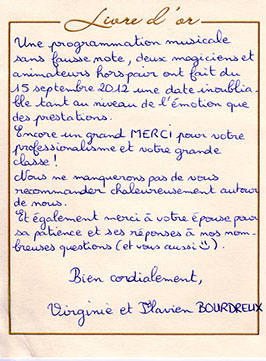 Livre d'or
Une programmation musicale
sans fausse note, deux magiciens et
animateurs hors pair ont fait du
15 septembre 2012 une date inoublia-
ble tant au niveau de l'émotion que
des prestations.
Encore un grand MERCI pour votre
professionalisme et votre grande
classe !
Nous ne manquerons pas de vous
recommander chaleureusement autour
de nous.
Et également merci à votre épouse pour
sa patience et ses réponses à nos nom-
breuses questions (et vous aussi ☺).
Bien cordialement,
Virginie et Flavien BOURDREUX